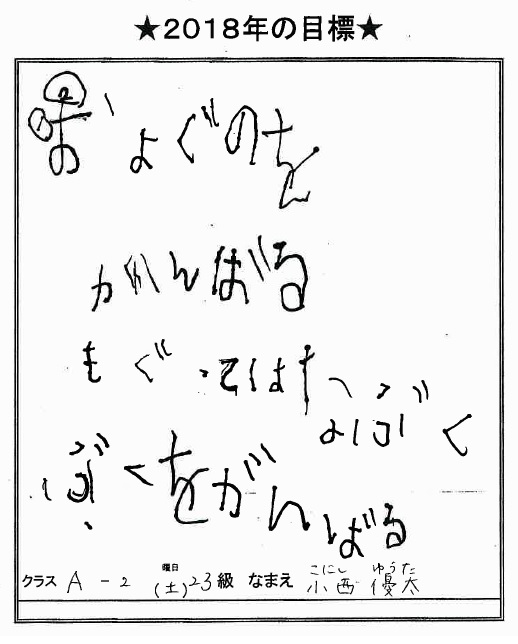 ★2018年の目標★
およぐのを
がんばる
もぐってはたら
よぶく
ぶくをがんばる
クラス A-2 曜日 (土) 23級 なまえ こにし ゆうた 小西 優太